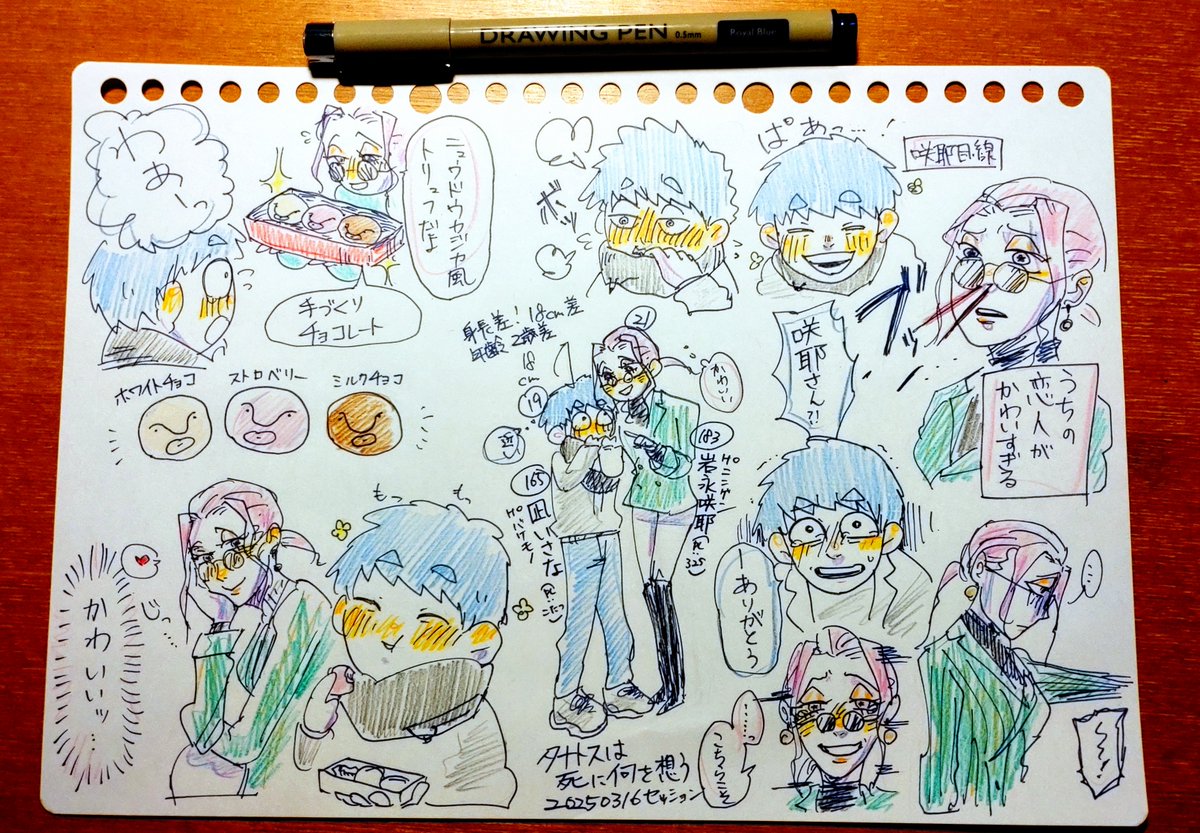 DRAWING PEN 0.5mm
Royal Blue
わあーっ
ニュウドウカジカ風
トリュフだよ
手づくり
チョコレート
ホワイトチョコ
ストロベリー
ミルクチョコ
ボッ
ぱあっ…!
咲耶目線
咲耶さん?!
うちの
恋人が
かわいすぎる
身長差!18cm差
年齢2歳差
18cm
19
21
かわいい
165
凪いさな
183
岩永咲耶
もっ もっ
じっ…
かわいいッ…
ありがとう
……っ
こちらこそ
……
タナトスは
死に何を想う
20250316セッション